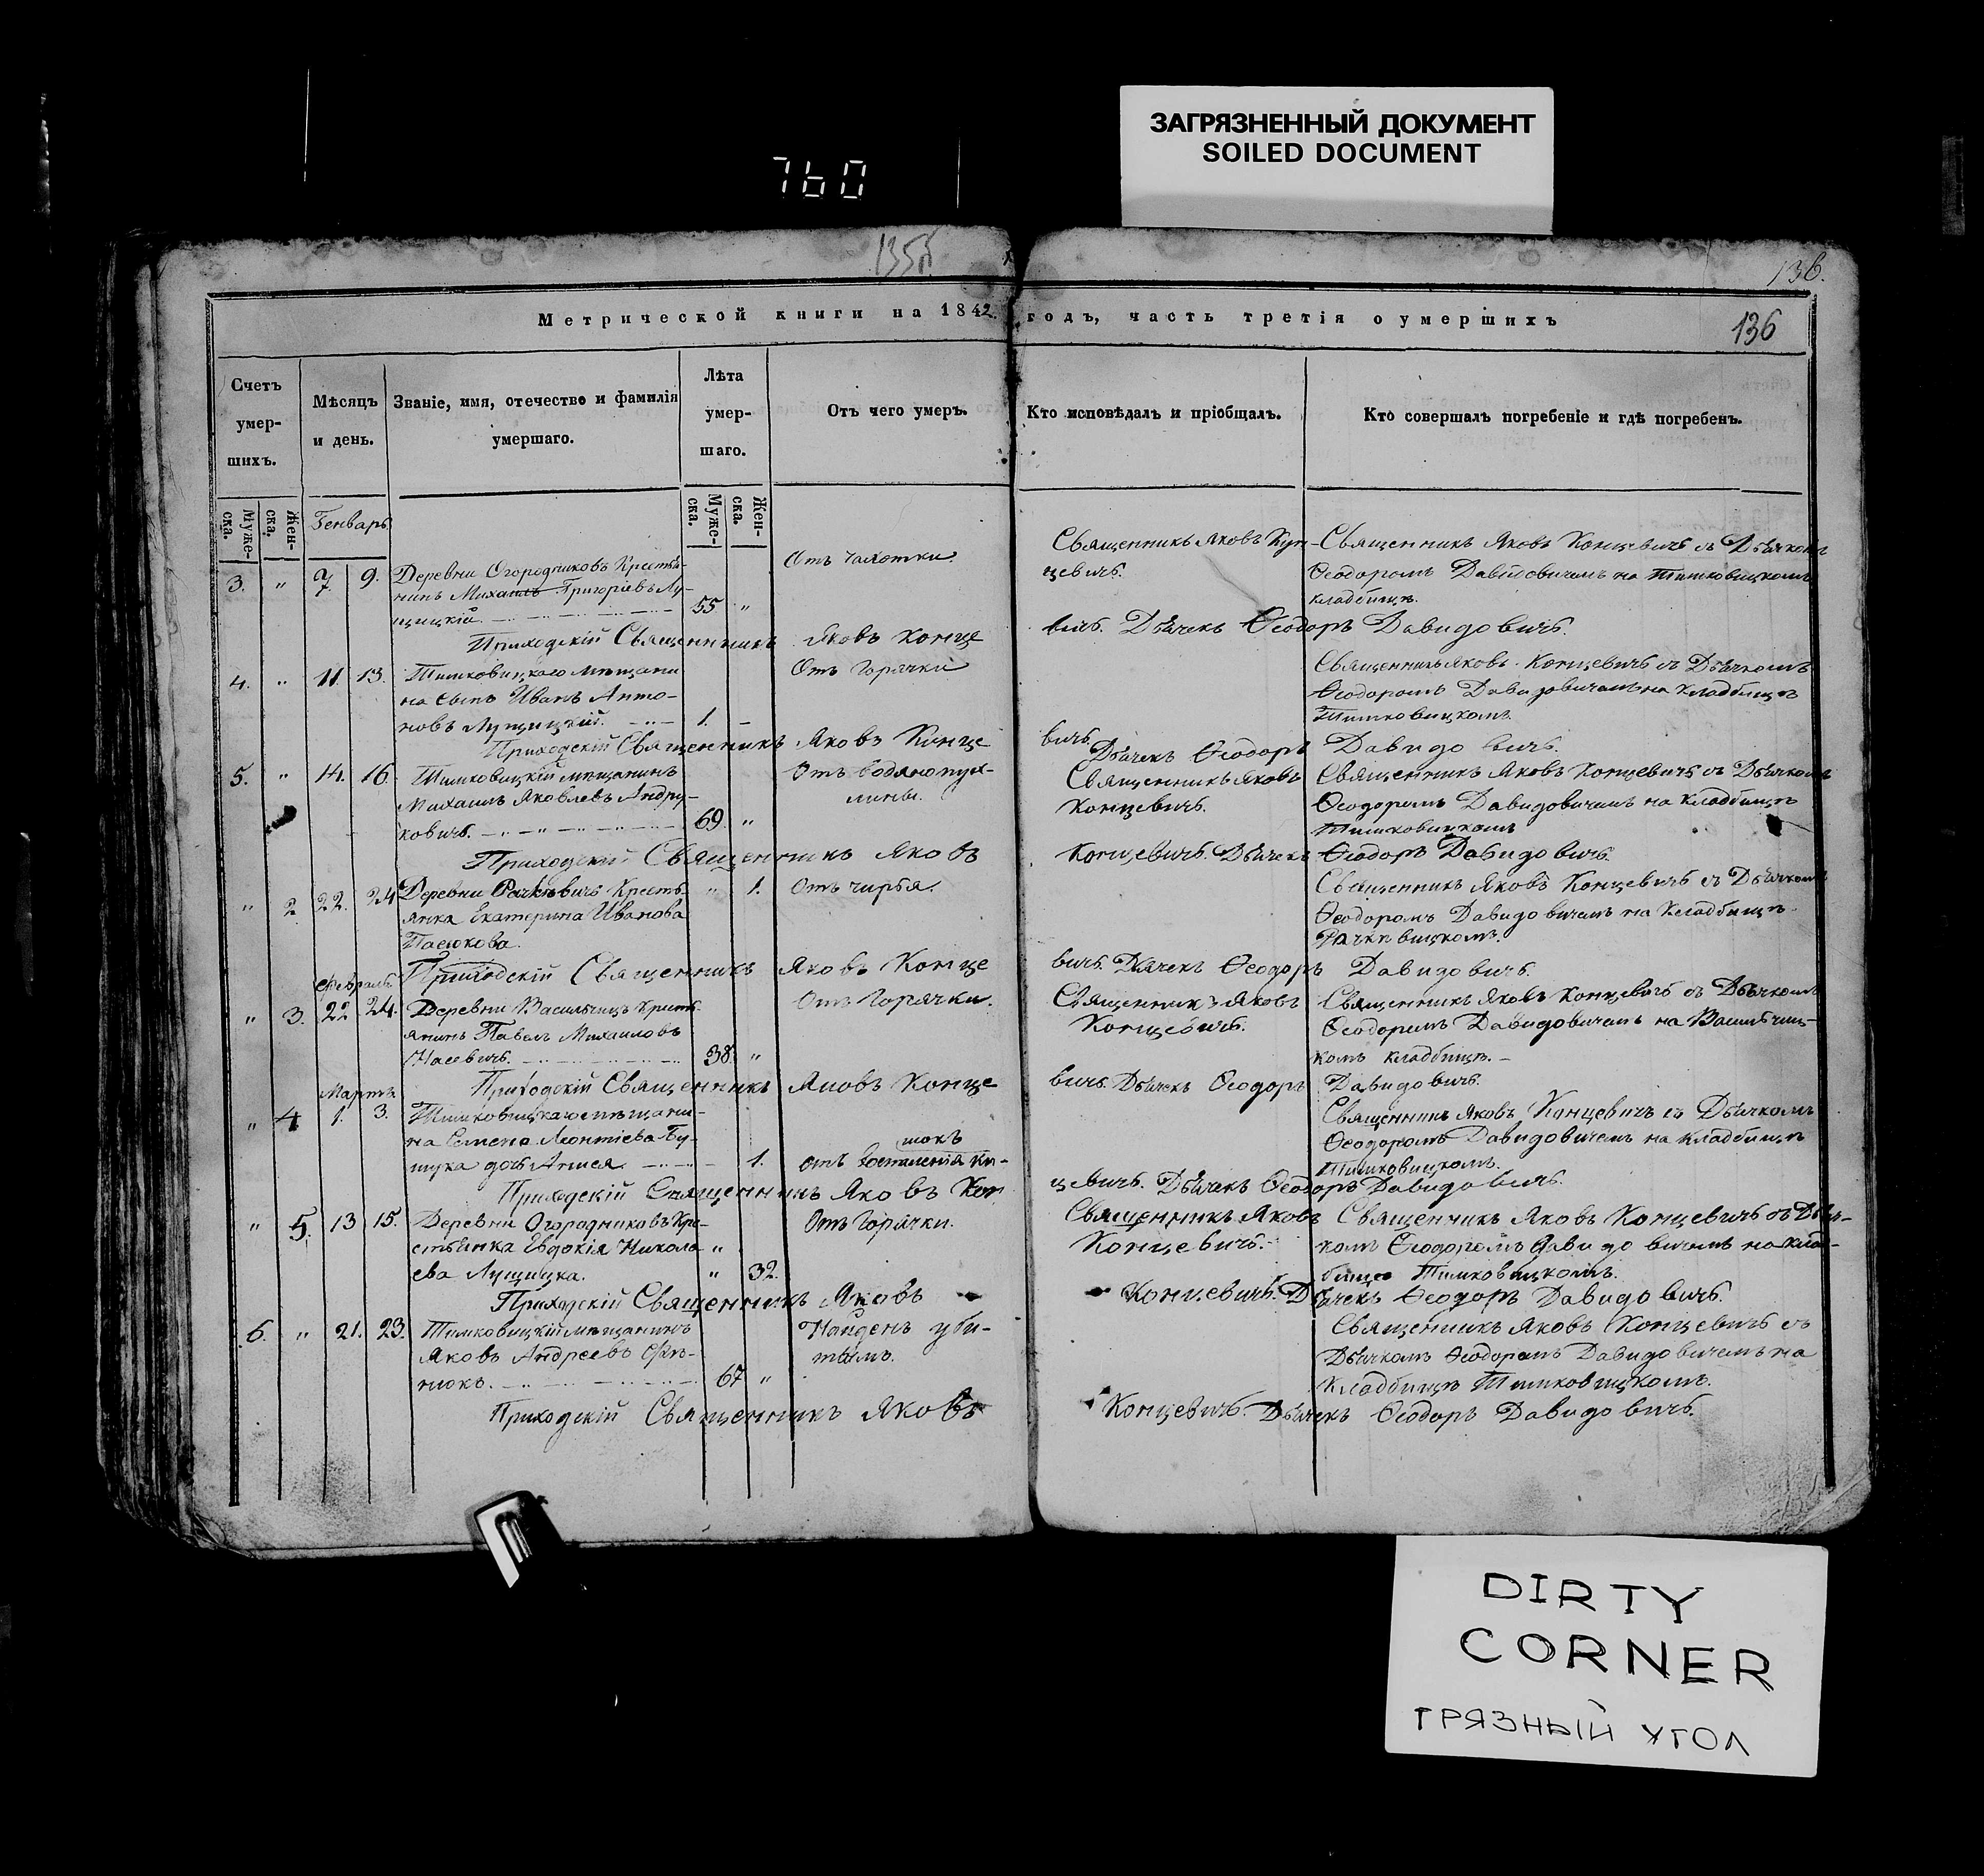 ЗАГРЯЗНЕННЫЙ ДОКУМЕНТ
SOILED DOCUMENT
760
135
136.
136
Метрической книги на 1842 годъ, часть третія о умершихъ
Счетъ умер-шихъ.
Мѣсяцъ и день.
Званіе, имя, отечество и фамилія умершаго.
Лѣта умер-шаго.
Отъ чего умеръ.
Кто исповѣдалъ и пріобщалъ.
Кто совершалъ погребеніе и гдѣ погребенъ.
Муже-ска.
Жен-ска.
Генварь
Муже-ска.
Жен-ска.
3. " 7. 9.
Деревни Огородниковъ Крестья-
нинъ Михаилъ Григоріевъ Лу-
щицкій. 55 "
Отъ чахотки
Священникъ Яковъ Кон-
цевичъ.
Священникъ Яковъ Концевичъ съ Дьячкомъ
Ѳеодоромъ Давидовичемъ на Тимковицкомъ
кладбищѣ.
Приходскій Священникъ Яковъ Концевичъ. Дьячекъ Ѳеодоръ Давидовичъ.
4. " 11. 13.
Тимковицкого мѣщани
на сынъ Иванъ Анто-
новъ Лущицкій. 1. -
Отъ Горячки
Священникъ Яковъ Концевичъ съ Дьячкомъ
Ѳеодоромъ Давидовичемъ на Кладбищѣ
Тимковицкомъ.
Приходскій Священникъ Яковъ Концевичъ. Дьячекъ Ѳеодоръ Давидовичъ.
5. " 14. 16.
Тимковицкій мѣщанинъ
Михаилъ Яковлевъ Андру-
ковичъ. 69. "
Отъ водяно пух-
лины.
Священникъ Яковъ
Концевичъ.
Священникъ Яковъ Концевичъ съ Дьячкомъ
Ѳеодоромъ Давидовичемъ на Кладбищѣ
Тимковицкомъ
Приходскій Священникъ Яковъ Концевичъ. Дьячекъ Ѳеодоръ Давидовичъ.
" 2 22. 24
Деревни Рачкевичъ Кресть
янка Екатерина Иванова
Пасюкова. " 1.
Отъ чирья.
Священникъ Яковъ Концевичъ съ Дьячкомъ
Ѳеодоромъ Давидовичемъ на Кладбищѣ
Рачкевицкомъ.
Приходскій Священникъ Яковъ Концевичъ. Дьячекъ Ѳеодоръ Давидовичъ.
Февраль
" 3. 22 24.
Деревни Васильчицъ Кресть
янинъ Павелъ Михаиловъ
38. "
Отъ Горячки.
Священникъ Яковъ
Концевичъ.
Священникъ Яковъ Концевичъ съ Дьячкомъ
Ѳеодоромъ Давидовичемъ на Васильчиц-
комъ кладбищѣ.
Приходскій Священникъ Яковъ Концевичъ. Дьячекъ Ѳеодоръ Давидовичъ.
Мартъ
" 4 1. 3.
Тимковицкаго мѣщани-
на Семена Леонтіева Бу-
дочь 1.
отъ воспаленія ки-
шокъ
Священникъ Яковъ Концевичъ съ Дьячкомъ
Ѳеодоромъ Давидовичемъ на Кладбищѣ
Тимковицкомъ.
Приходскій Священникъ Яковъ Концевичъ. Дьячекъ Ѳеодоръ Давидовичъ.
" 5. 13 15.
Деревни Огородниковъ Кре-
стьянка Евдокія Никола "
ева Лущицка. " 32.
Отъ Горячки.
Священникъ Яковъ
Концевичъ.
Священникъ Яковъ Концевичъ съ Дьяч-
комъ Ѳеодоромъ Давидовичемъ на клад-
бищѣ Тимковицкомъ.
Приходскій Священникъ Яковъ Концевичъ. Дьячекъ Ѳеодоръ Давидовичъ.
6. " 21. 23.
Тимковицкій мѣщанинъ
Яковъ Андреевъ
67 "
Найденъ уби-
тымъ.
Священникъ Яковъ Концевичъ съ
Дьячкомъ Ѳеодоромъ Давидовичемъ на
Кладбищѣ Тимковицкомъ.
Приходскій Священникъ Яковъ Концевичъ. Дьячекъ Ѳеодоръ Давидовичъ.
DIRTY
CORNER
ГРЯЗНЫЙ УГОЛ